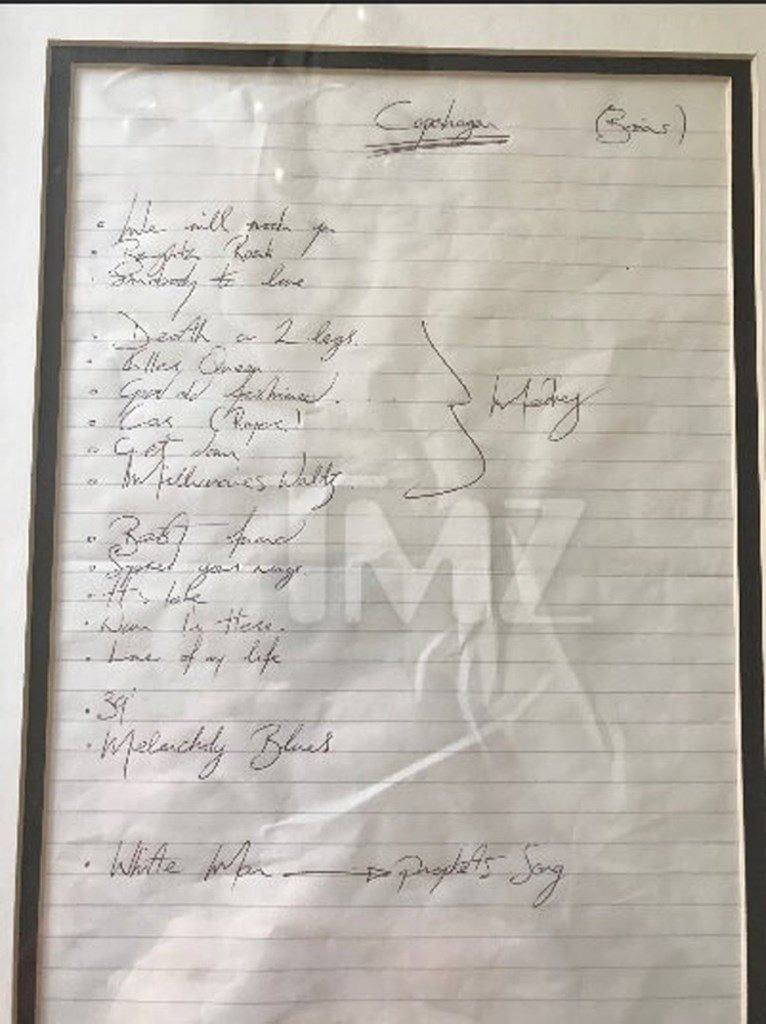 Copenhagen (Brians)
• We will rock you
• Brighton Rock
• Somebody to love
• Death on 2 legs.
• Killer Queen
• Good old fashioned.
• Cas (Rogers!)
• Get down
• Millionaires Waltz
Medley
• Best friend
• Spread your wings.
• It's late
• Now I'm Here.
• Love of my life
• 39'
• Melancholy Blues
• White Man → Prophets Song
TMZ